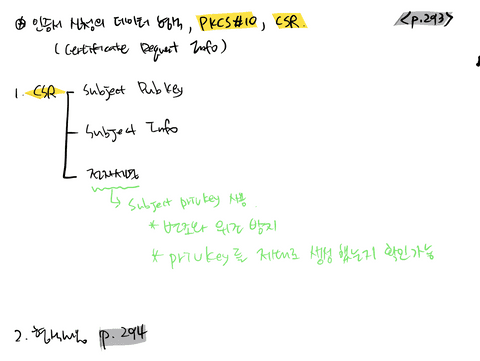 ⊛ 인증서 신청의 데이터 형식, PKCS#10, CSR. <p.293>
(Certificate Request Info)
1. CSR
Subject PubKey
Subject Info
전자서명
→ Subject privkey 사용
* 변조와 위조 방지
* privkey를 제대로 생성 했는지 확인가능
2. p.294